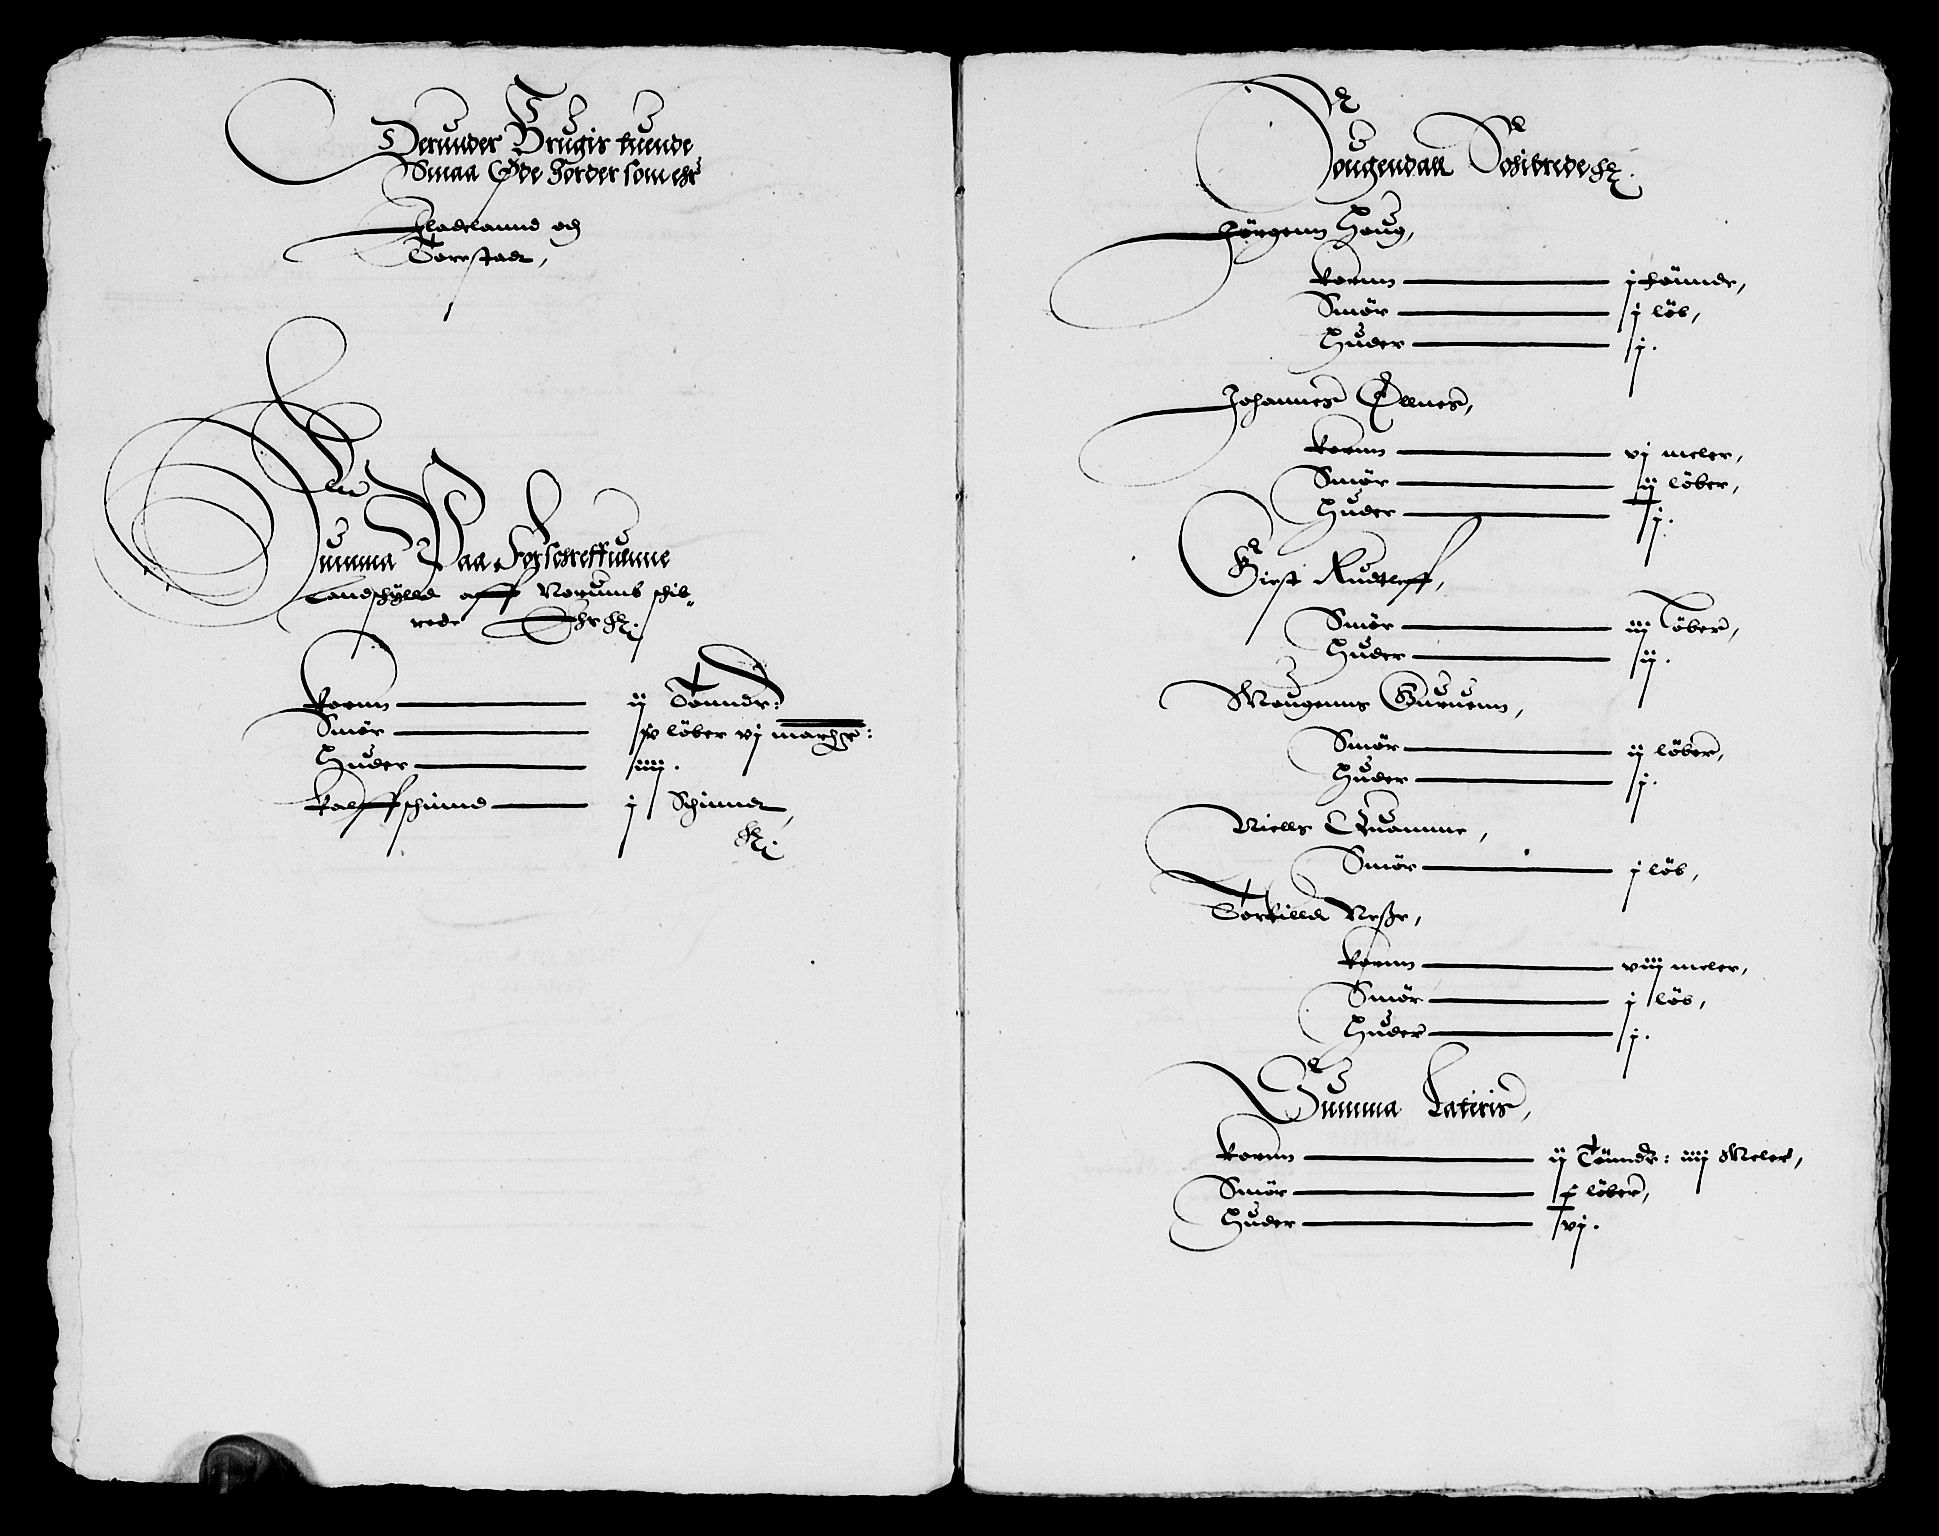 Derunder Brugis tuende
Smaa Øde Jorder som ehr
Fladelannd og
Torstadt,
Alle
Summa Paa Forschreffuenne
Landschylld aff Norums schib-
rede Ehr
Kornn ij Tønnder:
Smør xv løber vj marcher:
Huder iiij.
Kalffschinnd j Schinndt,
Sougendall Schibrede
Jørgenn Houg,
Kornn j tønnde,
Smør j løb,
Huder j.
Johannes Ellnes,
Kornn vj meler,
Smør ij løber,
Huder j.
Giest Rudtleff,
Smør iij Løber,
Huder ij.
Mougenns Guruenn,
Smør ij løber,
Huder j.
Niells Quamme,
Smør j løb,
Torkilld Neße,
Kornn viij meler,
Smør j løb,
Huder j.
Summa Lateris,
Kornn ij Tønnder: iiij Meler,
Smør x løber,
Huder vj.